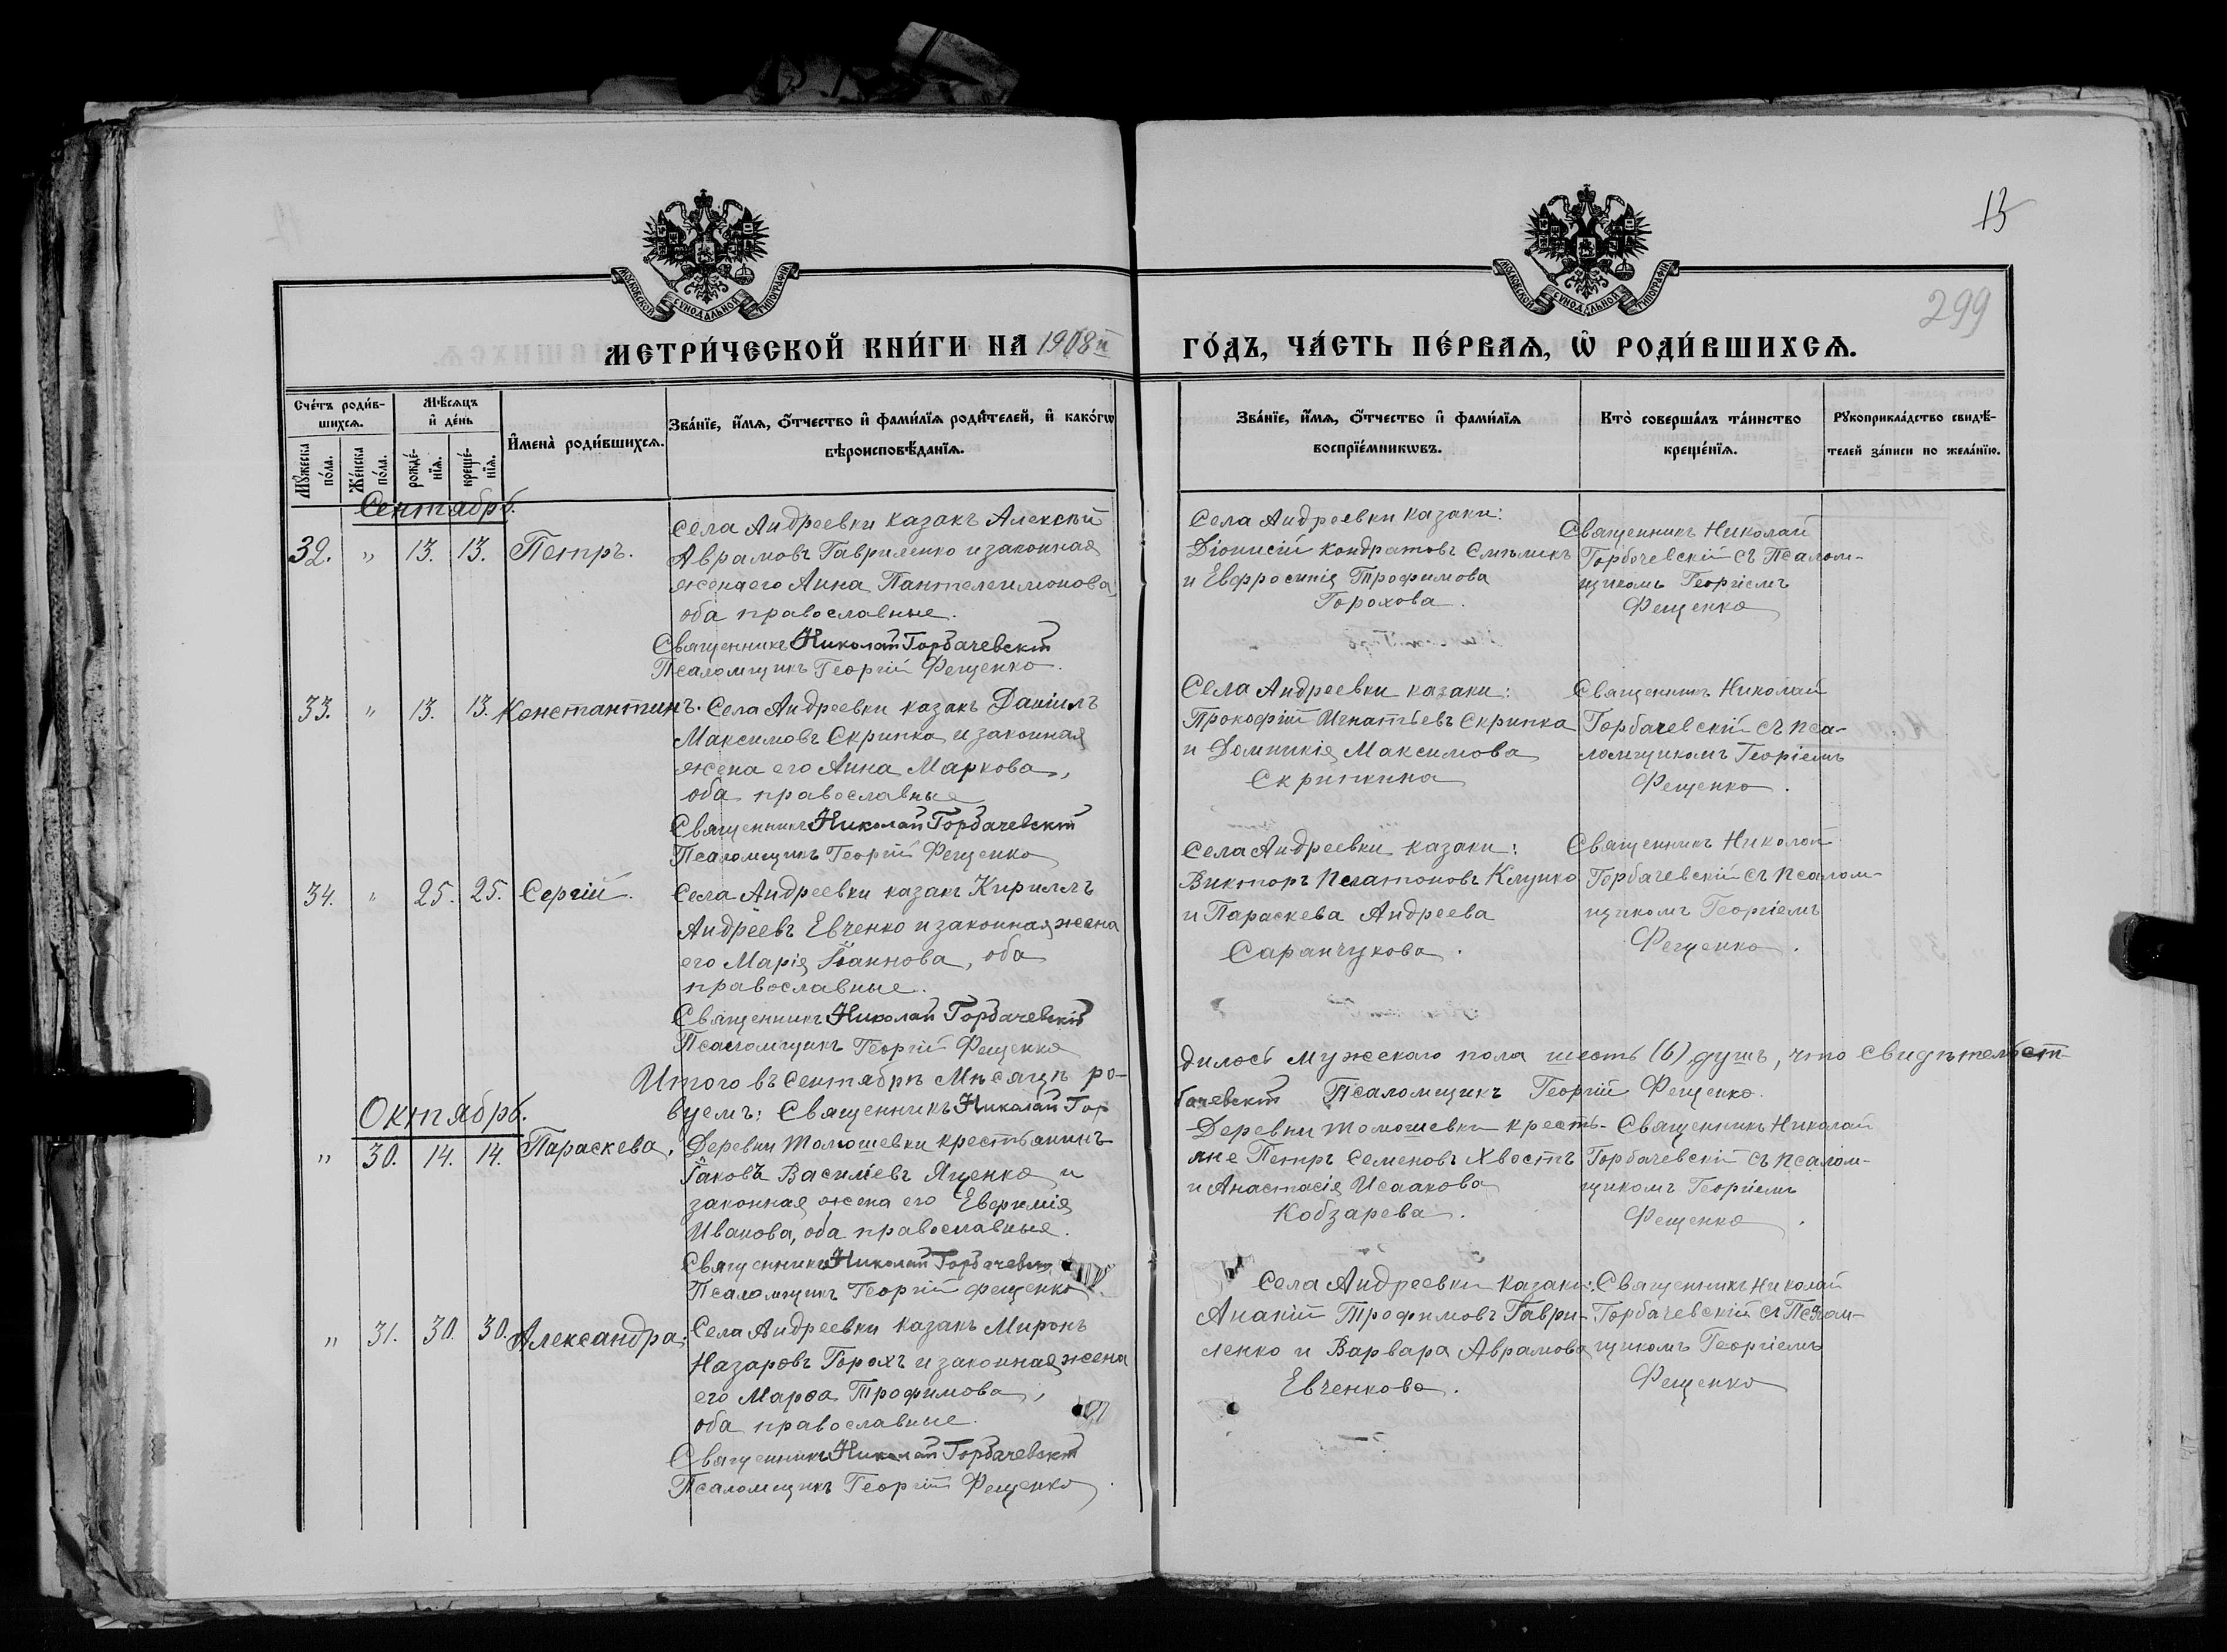 13
299
МОСКОВСКОЙ СѴНОДАЛЬНОЙ ТИПОГРАФІИ
МОСКОВСКОЙ СѴНОДАЛЬНОЙ ТИПОГРАФІИ
МЕТРИ́ЧЕСКОЙ КНИ́ГИ НА 1908й ГО́ДЪ, ЧА́СТЬ ПЕ́РВАѦ, Ѡ҆ РОДИ́ВШИХСѦ.
Сче́тъ роди́в-
шихсѧ.
Мꙋ́жеска по́ла.
Же́нска по́ла.
Мѣ́сѧцъ
и҆ де́нь
рожде́-
нїѧ.
креще́-
нїѧ.
И҆мена̀ роди́вшихсѧ.
Зва́нїе, и҆́мѧ, ѻ҆́тчество и҆ фами́лїѧ роди́телей, и҆ како́гѡ
вѣроисповѣ́данїѧ.
Зва́нїе, и҆́мѧ, ѻ҆́тчество и҆ фами́лїѧ
воспрїе́мникѡвъ.
Кто̀ соверша́лъ та́инство
креще́нїѧ.
Рꙋкоприкла́дство свидѣ́-
телей за́писи по жела́нїю.
Сентябрь.
32. " 13. 13. Петръ.
Села Андреевки казакъ Алексѣй
Аврамовъ Гавриленко и законная
жена его Анна Пантелеимонова,
оба православные.
Священникъ Николай Горбачевскій
Псаломщикъ Георгій Фещенко.
Села Андреевки казаки:
Діонисій Кондратовъ Смѣликъ
и Евфросинія Трофимова
Горохова.
Священникъ Николай
Горбачевскій съ Псалом-
щикомъ Георгіемъ
Фещенко
33. " 13. 13. Константинъ.
Села Андреевки казакъ Даніилъ
Максимовъ Скрипка и законная
жена его Анна Маркова,
оба православные
Священникъ Николай Горбачевскій
Псаломщикъ Георгій Фещенко
Села Андреевки казаки:
Прокофій Игнатьевъ Скрипка
и Домникія Максимова
Скрипкина
Священникъ Николай
Горбачевскій съ Пса-
ломщикомъ Георгіемъ
Фещенко.
34. " 25. 25. Сергій.
Села Андреевки казакъ Кириллъ
Андреевъ Евченко и законная жена
его Марія Іоаннова, оба
православные.
Священникъ Николай Горбачевскій
Псаломщикъ Георгій Фещенко
Села Андреевки казаки:
Викторъ Платоновъ
и Параскева Андреева
Саранчукова.
Священникъ Николай
Горбачевскій съ Псалом-
щикомъ Георгіемъ
Фещенко.
Итого въ Сентябрѣ Мѣсяцѣ ро-
дилось мужескаго пола шесть (6) душъ, что свидѣтельст-
вуемъ: Священникъ Николай Гор
бачевскій Псаломщикъ Георгій Фещенко.
Октябрь.
" 30. 14. 14. Параскева.
Деревни Томошевки крестьянинъ
Іаковъ Василіевъ Яценко и
законная жена его Евфимія
Иванова, оба православные.
Священникъ Николай Горбачевскій
Псаломщикъ Георгій Фещенко.
Деревни Томошевки кресть-
яне Петръ Семеновъ Хвостъ
и Анастасія Исаакова
Кобзарева.
Священникъ Николай
Горбачевскій съ Псалом-
щикомъ Георгіемъ
Фещенко.
" 31. 30. 30. Александра.
Села Андреевки казакъ Миронъ
Назаровъ Горохъ и законная жена
его Марѳа Трофимова,
оба православные.
Священникъ Николай Горбачевскій
Псаломщикъ Георгій Фещенко.
Села Андреевки казаки:
Ананій Трофимовъ Гаври-
ленко и Варвара Аврамова
Евченкова.
Священникъ Николай
Горбачевскій съ Псалом-
щикомъ Георгіемъ
Фещенко